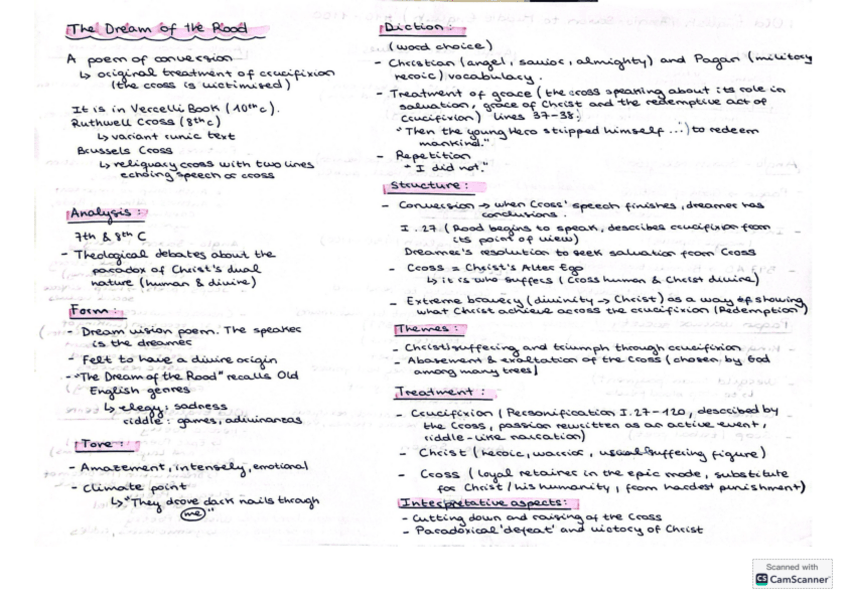 The Dream of the Rood
A poem of conversion
↳ original treatment of crucifixion
(the cross is victimised)
It is in Vercelli Book (10th c).
Ruthwell Cross (8th c)
↳ variant runic text
Brussels Cross
↳ reliquary cross with two lines
echoing speech of cross
Analysis:
7th & 8th C
- Theological debates about the
paradox of Christ's dual
nature (human & divine)
Form:
- Dream vision poem. The speaker
is the dreamer
- Felt to have a divine origin
- "The Dream of the Rood" recalls Old
English genres
↳ elegy: sadness
riddle: games, adivinanzas
Tone:
- Amazement, intensely, emotional
- Climate point
↳ "They drove dark nails through
me"
Diction:
(word choice)
- Christian (angel, savior, almighty) and Pagan (military
heroic) vocabulary.
- Treatment of grace (the cross speaking about its role in
salvation, grace of Christ and the redemptive act of
Crucifixion) lines 37-38:
"Then the young Hero stripped himself ...) to redeem
mankind."
- Repetition
"I did not."
Structure:
- Conversion → when Cross' speech finishes, dreamer has
conclusions.
I. 27 (Rood begins to speak, describes crucifixion from
its point of view)
Dreamer's resolution to seek salvation from Cross
- Cross = Christ's Alter Ego
↳ it is who suffers (Cross human & Christ divine)
- Extreme bravery (divinity → Christ) as a way of showing
what Christ achieve across the crucifixion (Redemption)
Themes:
- Christ suffering and triumph through crucifixion
- Abasement & exaltation of the Cross (chosen by God
among many trees)
Treatment:
- Crucifixion (Personification I. 27-120, described by
the Cross, passion rewritten as an active event,
riddle-line narration)
- Christ (heroic, warrior, usual suffering figure)
- Cross (loyal retainer in the epic mode, substitute
for Christ / his humanity, from hardest punishment)
Interpretative aspects:
- Cutting down and raising of the Cross
- Paradoxical 'defeat' and victory of Christ
Scanned with
CS CamScanner